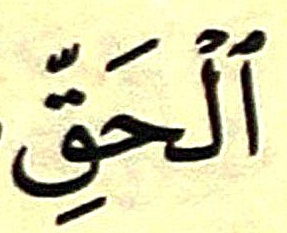 ٱلْحَقِّ